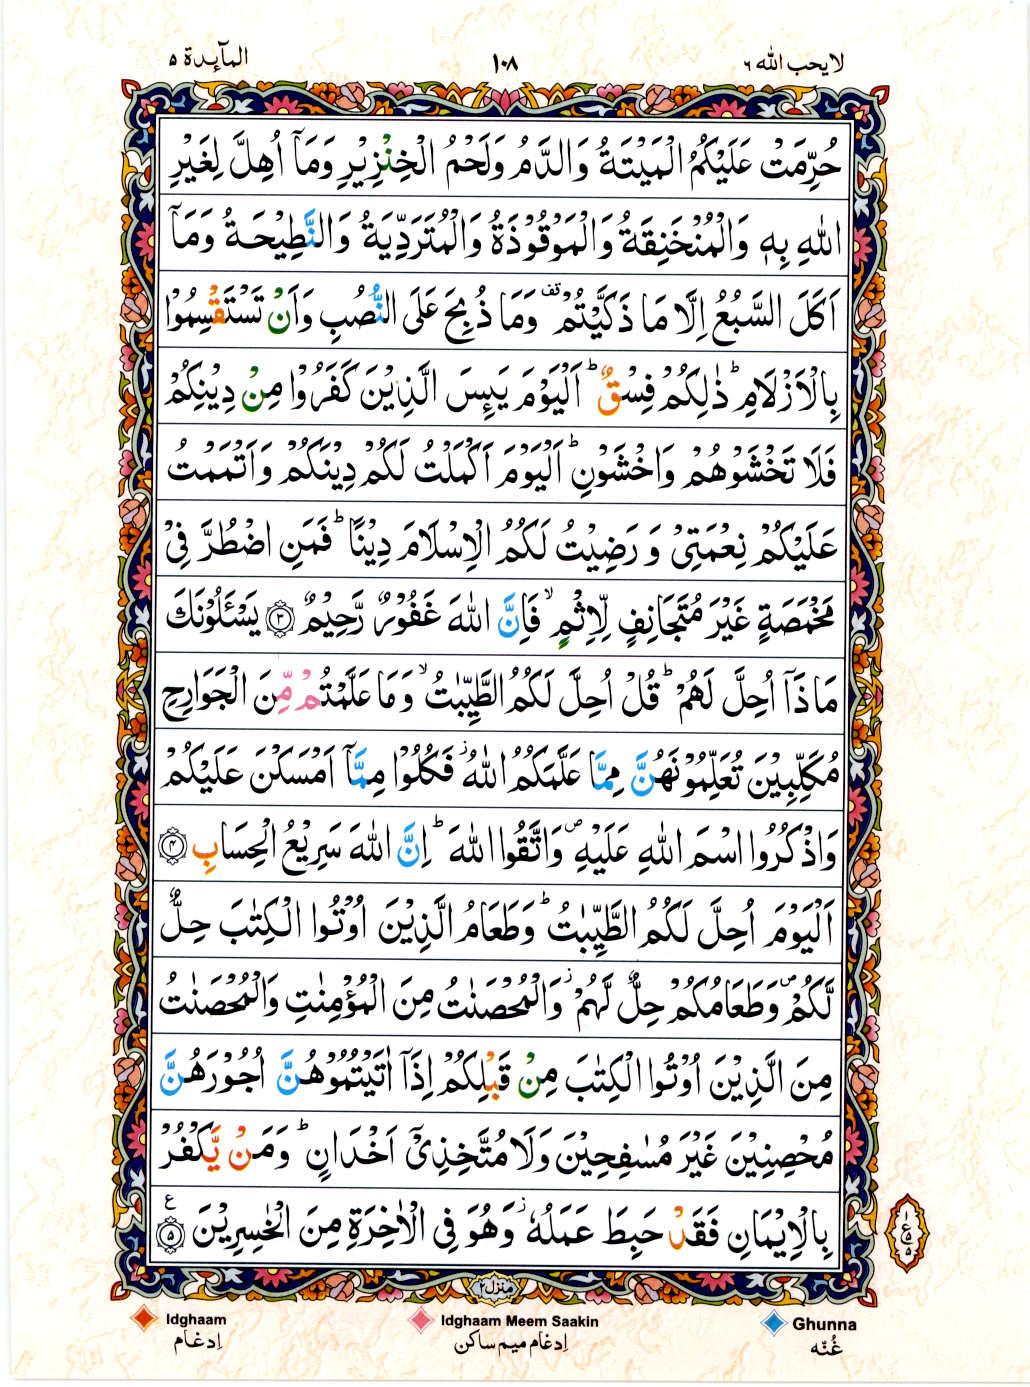 المآىدة ۵
١٠٨
لايحب الله ٦
حُرِّمَتْ عَلَيْكُمُ الْمَيْتَةُ وَالدَّمُ وَلَحْمُ الْخِنْزِيْرِ وَمَاۤ اُهِلَّ لِغَيْرِ
اللّٰهِ بِهٖ وَالْمُنْخَنِقَةُ وَالْمَوْقُوْذَةُ وَالْمُتَرَدِّيَةُ وَالنَّطِيْحَةُ وَمَاۤ
اَكَلَ السَّبُعُ اِلَّا مَا ذَكَّيْتُمْ ࣞ وَمَا ذُبِحَ عَلَى النُّصُبِ وَاَنْ تَسْتَقْسِمُوْا
بِالْاَزْلَامِ ؕ ذٰلِكُمْ فِسْقٌ ؕ اَلْيَوْمَ يَىِٕسَ الَّذِيْنَ كَفَرُوْا مِنْ دِيْنِكُمْ
فَلَا تَخْشَوْهُمْ وَاخْشَوْنِ ؕ اَلْيَوْمَ اَكْمَلْتُ لَكُمْ دِيْنَكُمْ وَاَتْمَمْتُ
عَلَيْكُمْ نِعْمَتِيْ وَ رَضِيْتُ لَكُمُ الْاِسْلَامَ دِيْنًا ؕ فَمَنِ اضْطُرَّ فِيْ
مَخْمَصَةٍ غَيْرَ مُتَجَانِفٍ لِّاِثْمٍ ۙ فَاِنَّ اللّٰهَ غَفُوْرٌ رَّحِيْمٌ ۝۳ يَسْـَٔلُوْنَكَ
مَاذَاۤ اُحِلَّ لَهُمْ ؕ قُلْ اُحِلَّ لَكُمُ الطَّيِّبٰتُ ۙ وَمَا عَلَّمْتُمْ مِّنَ الْجَوَارِحِ
مُكَلِّبِيْنَ تُعَلِّمُوْنَهُنَّ مِمَّا عَلَّمَكُمُ اللّٰهُ ؗ فَكُلُوْا مِمَّاۤ اَمْسَكْنَ عَلَيْكُمْ
وَاذْكُرُوا اسْمَ اللّٰهِ عَلَيْهِ ۪ وَاتَّقُوا اللّٰهَ ؕ اِنَّ اللّٰهَ سَرِيْعُ الْحِسَابِ ۝۴
اَلْيَوْمَ اُحِلَّ لَكُمُ الطَّيِّبٰتُ ؕ وَطَعَامُ الَّذِيْنَ اُوْتُوا الْكِتٰبَ حِلٌّ
لَّكُمْ ۪ وَطَعَامُكُمْ حِلٌّ لَّهُمْ ؗ وَالْمُحْصَنٰتُ مِنَ الْمُؤْمِنٰتِ وَالْمُحْصَنٰتُ
مِنَ الَّذِيْنَ اُوْتُوا الْكِتٰبَ مِنْ قَبْلِكُمْ اِذَاۤ اٰتَيْتُمُوْهُنَّ اُجُوْرَهُنَّ
مُحْصِنِيْنَ غَيْرَ مُسٰفِحِيْنَ وَلَا مُتَّخِذِيْۤ اَخْدَانٍ ؕ وَمَنْ يَّكْفُرْ
بِالْاِيْمَانِ فَقَدْ حَبِطَ عَمَلُهٗ ؗ وَهُوَ فِي الْاٰخِرَةِ مِنَ الْخٰسِرِيْنَ ۝۵ ع
١ ع ۵ ۵
منزل ٢
Idghaam
Idghaam Meem Saakin
Ghunna
اِدغام
اِدغام میم ساکن
غُنّه